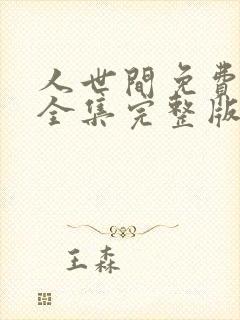 人世間免費
全集完整版
王森